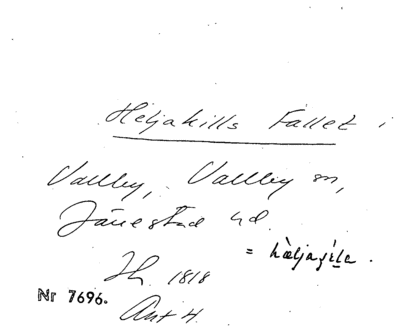 Heljakills Fallet i
Vallby, Vallby sn,
Järrestad hd.
= hàljaɣíla.
Ih. 1818
Nr 7696.
Ant 4.